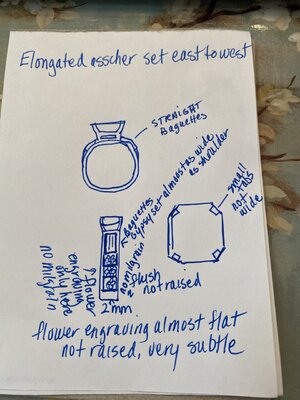 Elongated asscher set east to west
STRAIGHT
Baguettes
Baguettes
gypsy set almost as wide
as shoulder
no milgrain
flush
not raised
small
Tabs
not
wide
flower
engraving
only here
no milgrain
2mm
flower engraving almost flat
not raised, very subtle